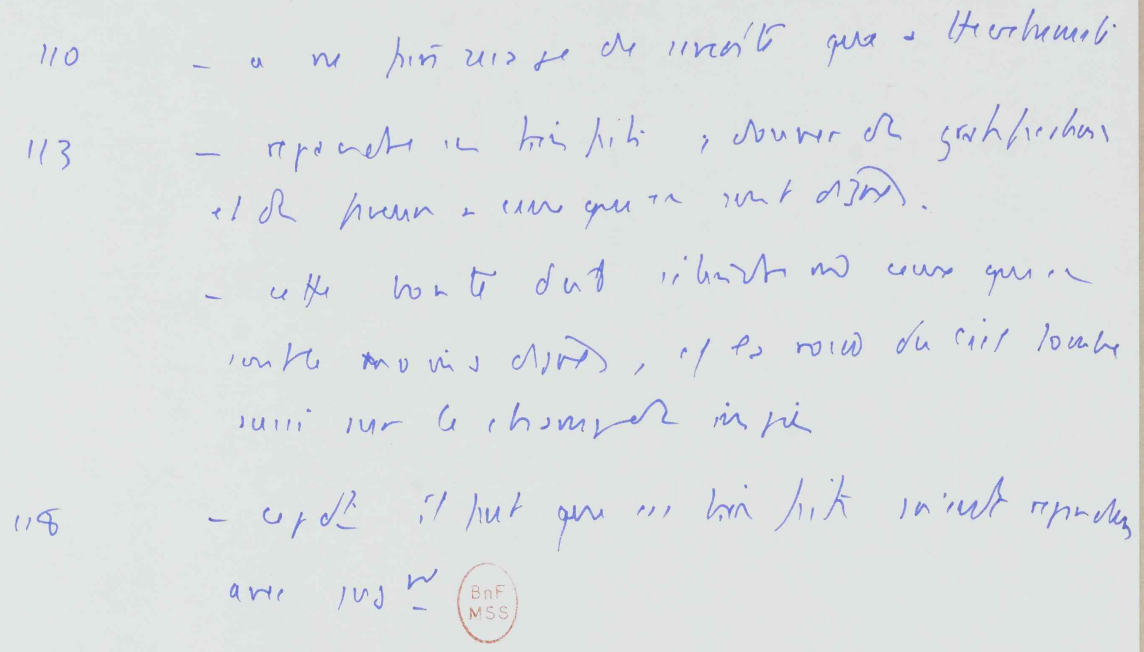 110 – a ne faire usage de sévérité que
113 – répandre ses bienfaits, donner des gratifications
et des faveurs à ceux qui en sont dignes.
– cette bonté doit s'étendre aux ceux qui en
sont le moins dignes, et la rosée du ciel tombe
aussi sur le champ de l'impie
118 – cepdt il faut que ses bienfaits soient répandus
avec
BnF
MSS